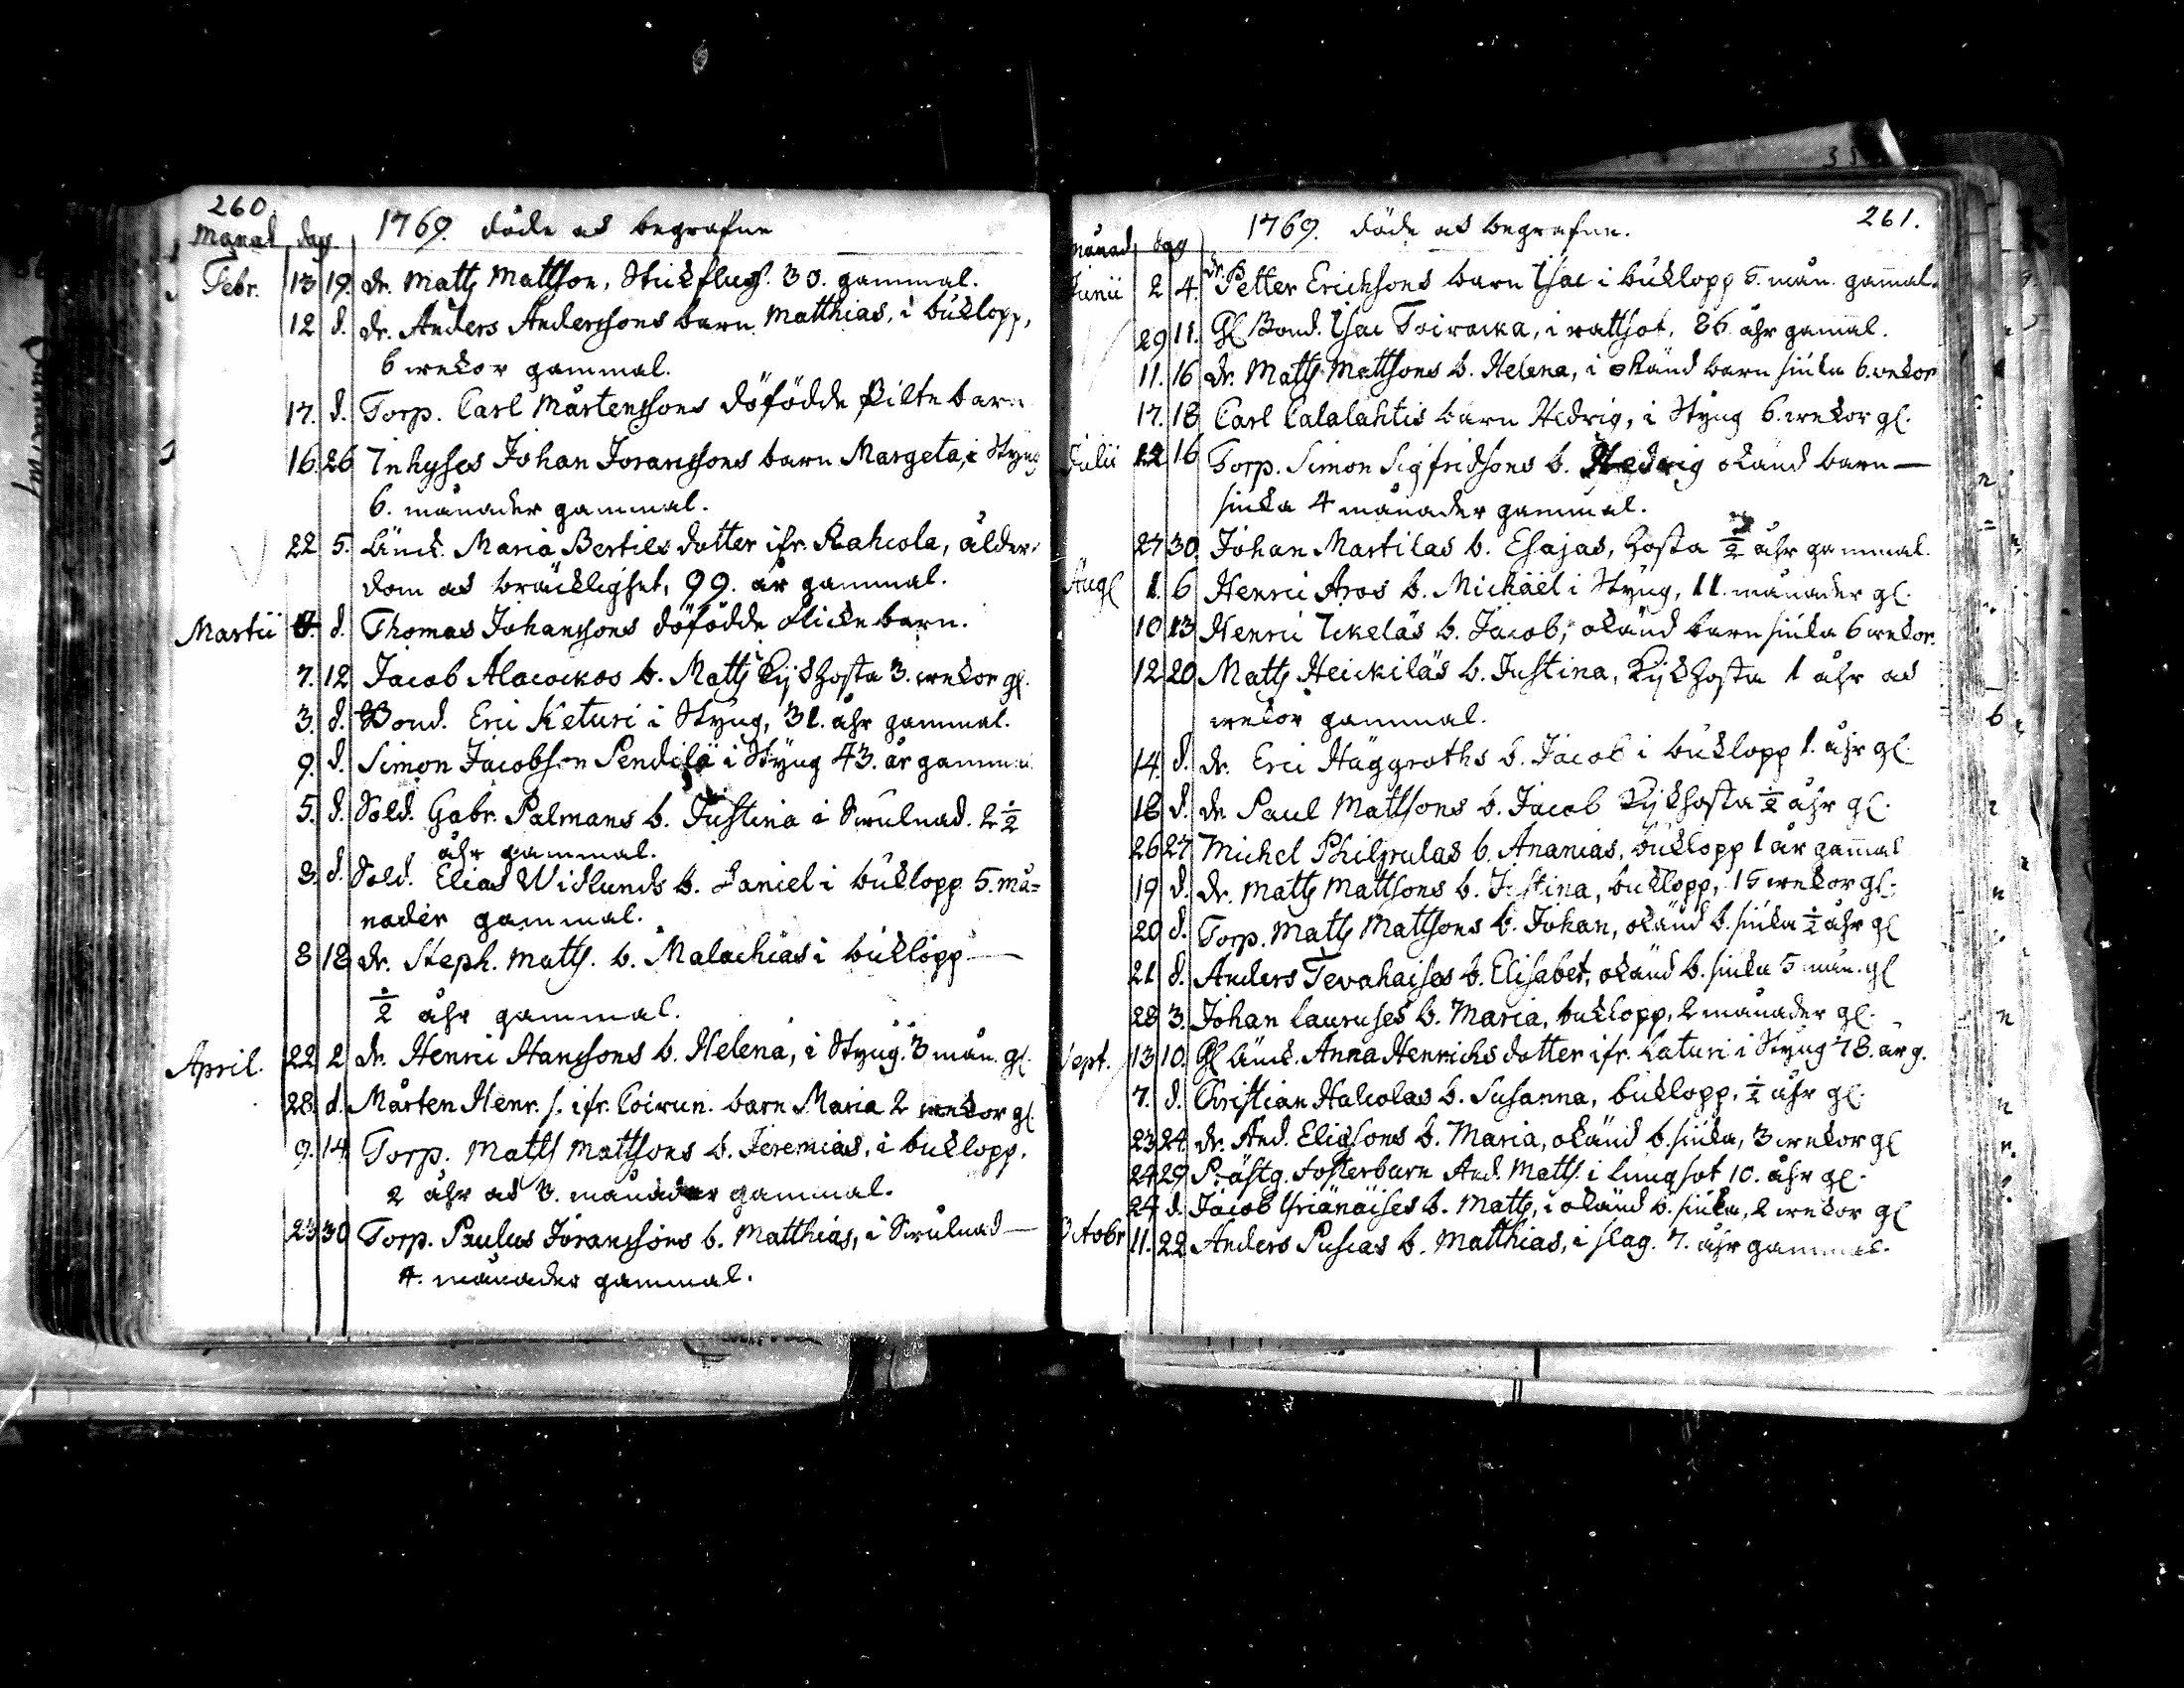 260
Månad dag. 1769. döde och begrafne
Febr. 13 19. dr. Matts Mattson, Stickflus. 30. gammal.
12 d. dr. Anders Anderssons barn Matthias, i buklopp,
6 wekor gammal.
17. d. Torp. Carl Mårtenssons döfödde Pilte barn
16 26 Inhyses Johan Joranssons barn Margeta, i Styng
6. månader gammal.
22 5. Änck. Maria Bertils dotter ifr. Rahcola, ålder-
dom och bräcklighet, 99. år gammal.
Martii d. Thomas Johanssons döfödde flicke barn.
7. 12 Jacob Alacockos b. Matts Kijkhosta 3. wekor gl.
3. d. Bond. Eric Keturi i Styng, 31. åhr gammal.
9. d. Simon Jacobsson Pendilä i Styng 43. år gammal
5. d. Sold. Gabr. Palmans b. Justina i Swulnad. 2 1/2
åhr gammal.
3. d. Sold. Elias Widlunds b. Daniel i buklopp 5. må=
nader gammal.
8 18 dr. Steph. Matts. b. Malachias i buklopp —
1/2 åhr gammal.
April. 22 2 dr. Henric Hanssons b. Helena, i Styng. 3 mån. gl.
28. d. Mårten Henr. s. ifr. barn Maria 2 wekor gl.
9. 14 Torp. Matts Mattsons b. Jeremias, i buklopp.
2 åhr och 3. månader gammal.
23 30 Torp. Paulus Joranssons b. Matthias, i Swulnad —
4. månader gammal.
261.
månad dag 1769. döde och begrafne.
Junii 2 4. dr. Petter Ericksons barn Isac i buklopp 5. mån. gamal.
29 11. Gl Bond. Isac Toiwacka, i wattsot, 86 åhr gamal.
11. 16 dr. Matts Mattsons b. Helena, i okänd barn siuka 6. wekor
17. 18 Carl Calalahtis barn Hedvig, i Styng 6. wekor gl.
Julii 12 16 Torp. Simon Sigfridsons b. Hedvig okänd barn —
siuka 4 månader gammal.
27 30 Johan Martilas b. Esajas, hosta 1/2 åhr gammal.
Aug 1. 6 Henric Aros b. Michael i Styng, 11. månader gl.
10 13 Henric Ickeläs b. Jacob, okänd barn siuka 6 wekor.
12 20 Matts Heickiläs b. Justina, Kijkhosta 1 åhr och
wekor gammal.
14. d. dr. Eric Häggroths b. Jacob i buklopp 1. åhr gl.
18 d. dr Paul Mattsons b. Jacob Kijkhosta 1/2 åhr gl.
26 27 Michel Philpulas b. Ananias, buklopp 1 år gammal
19 d. dr. Matts Mattsons b. Justina, buklopp, 15 wekor gl.
20 d. Torp. Matts Mattsons b. Johan, okänd b. siuka 1/2 åhr gl
21 d. Anders Tevahaises b. Elisabet, okänd b. siuka 5 mån. gl
28 3. Johan Lauruses b. Maria, buklopp, 2 månader gl.
Sept. 13 10. Gl Änck. Anna Henrichs dotter ifr. Laturi i Styng 78. år g.
7. d. Christian Halcolas b. Susanna, buklopp, 1/2 åhr gl.
23 24. dr. And. Eliæsons b. Maria, okänd b. siuka, 3 wekor gl
24 29 Prästg. fosterbarn And. Matts. i lungsot 10. åhr gl.
24 d. Jacob b. Matts, i okänd b. siuka, 2 wekor gl
Octobr 11. 22 Anders Puscas b. Matthias, i slag. 7. åhr gammal.